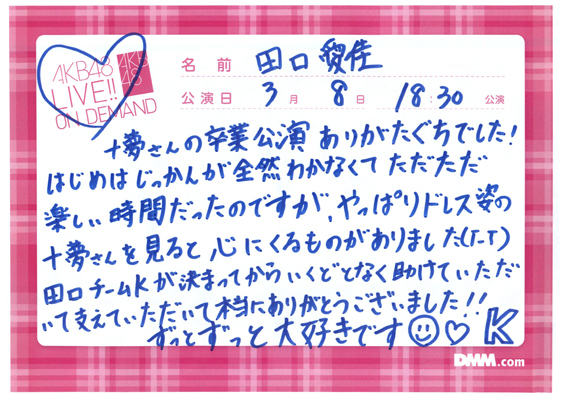 AKB48
LIVE!!
ON DEMAND
AKB
48
名前 田口 愛佳
公演日 3月 8日 18:30 公演
十夢さんの卒業公演 ありがたぐちでした!
はじめはじっかんが全然わかなくて ただただ
楽しい時間だったのですが、やっぱりドレス姿の
十夢さんを見ると 心にくるものがありました(T-T)
田口チームKが決まってから いくどとなく助けていただ
いて支えていただいて本当にありがとうございました!!
ずっとずっと大好きです K
DMM.com